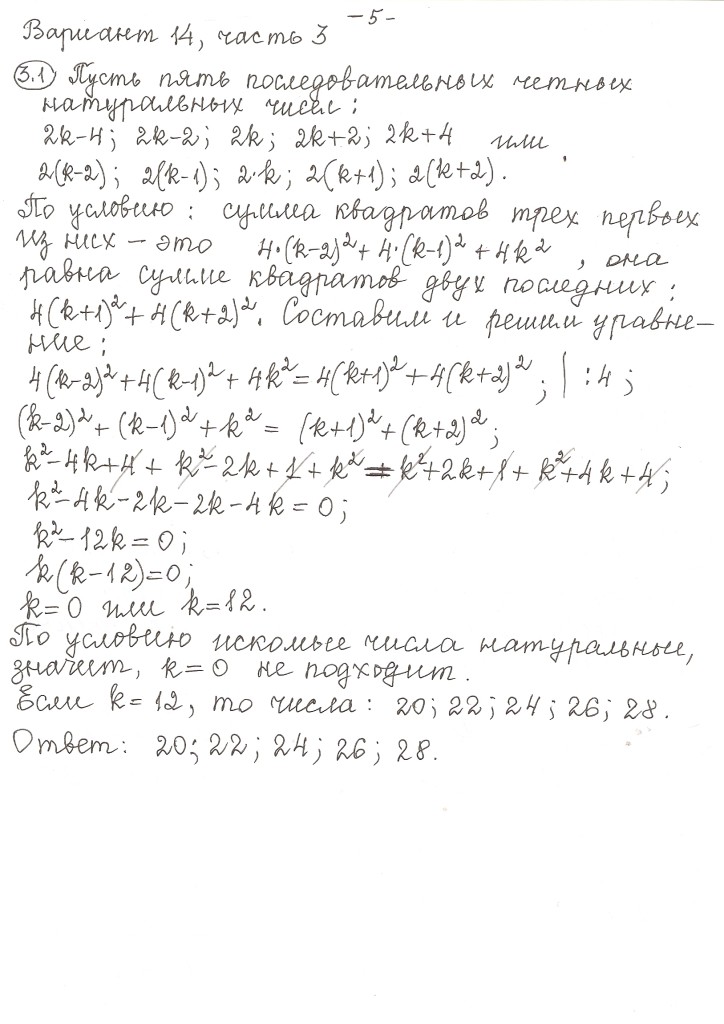 -5-
Вариант 14, часть 3
3.1 Пусть пять последовательных четных
натуральных чисел:
2k-4; 2k-2; 2k; 2k+2; 2k+4 или
2(k-2); 2(k-1); 2·k; 2(k+1); 2(k+2).
По условию: сумма квадратов трех первых
из них – это 4·(k-2)²+4·(k-1)²+4k², она
равна сумме квадратов двух последних:
4(k+1)²+4(k+2)². Составим и решим уравне-
ние:
4(k-2)²+4(k-1)²+4k²=4(k+1)²+4(k+2)²; | :4;
(k-2)²+(k-1)²+k²= (k+1)²+(k+2)²;
k²-4k+4+k²-2k+1+k²=k²+2k+1+k²+4k+4;
k²-4k-2k-2k-4k=0;
k²-12k=0;
k(k-12)=0;
k=0 или k=12.
По условию искомые числа натуральные,
значит, k=0 не подходит.
Если k=12, то числа: 20; 22; 24; 26; 28.
Ответ: 20; 22; 24; 26; 28.